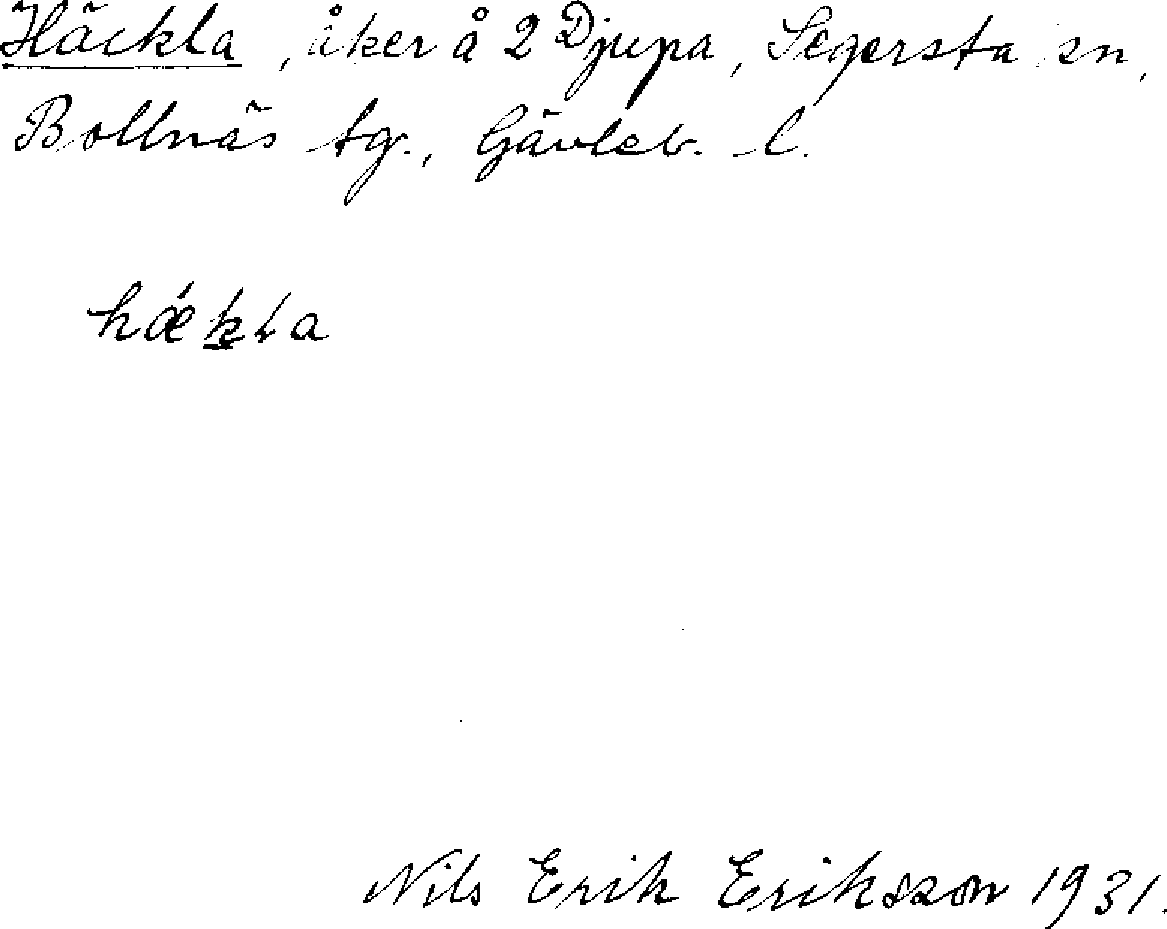 Häckla, åker å 2 Djupa, Segersta sn,
Bollnäs tg., Gävleb. l.
hǽkla
Nils Erik Eriksson 1931.